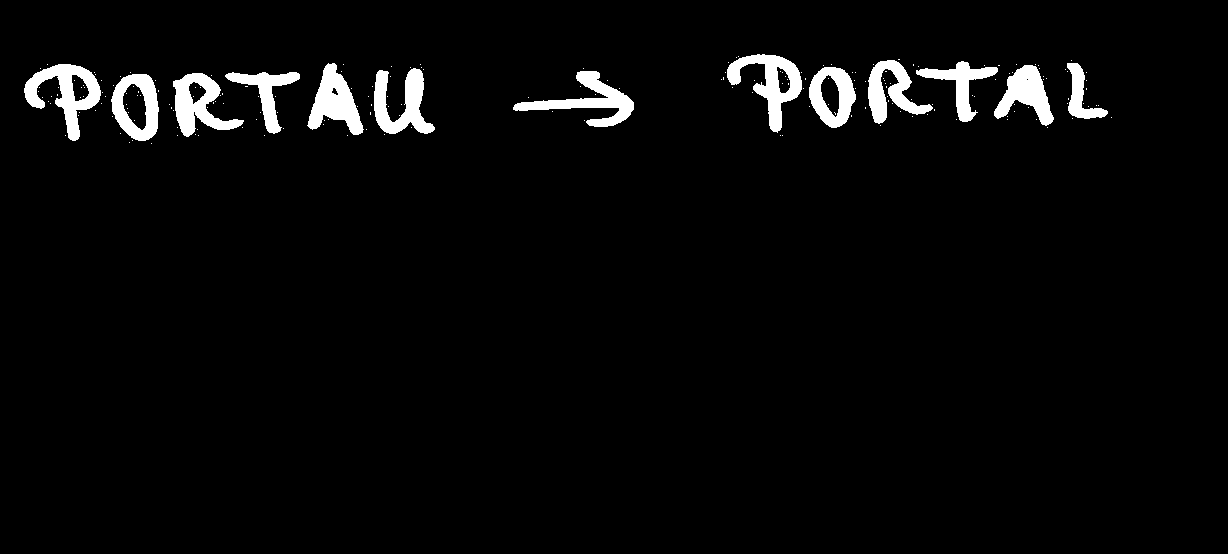 PORTAU → PORTAL